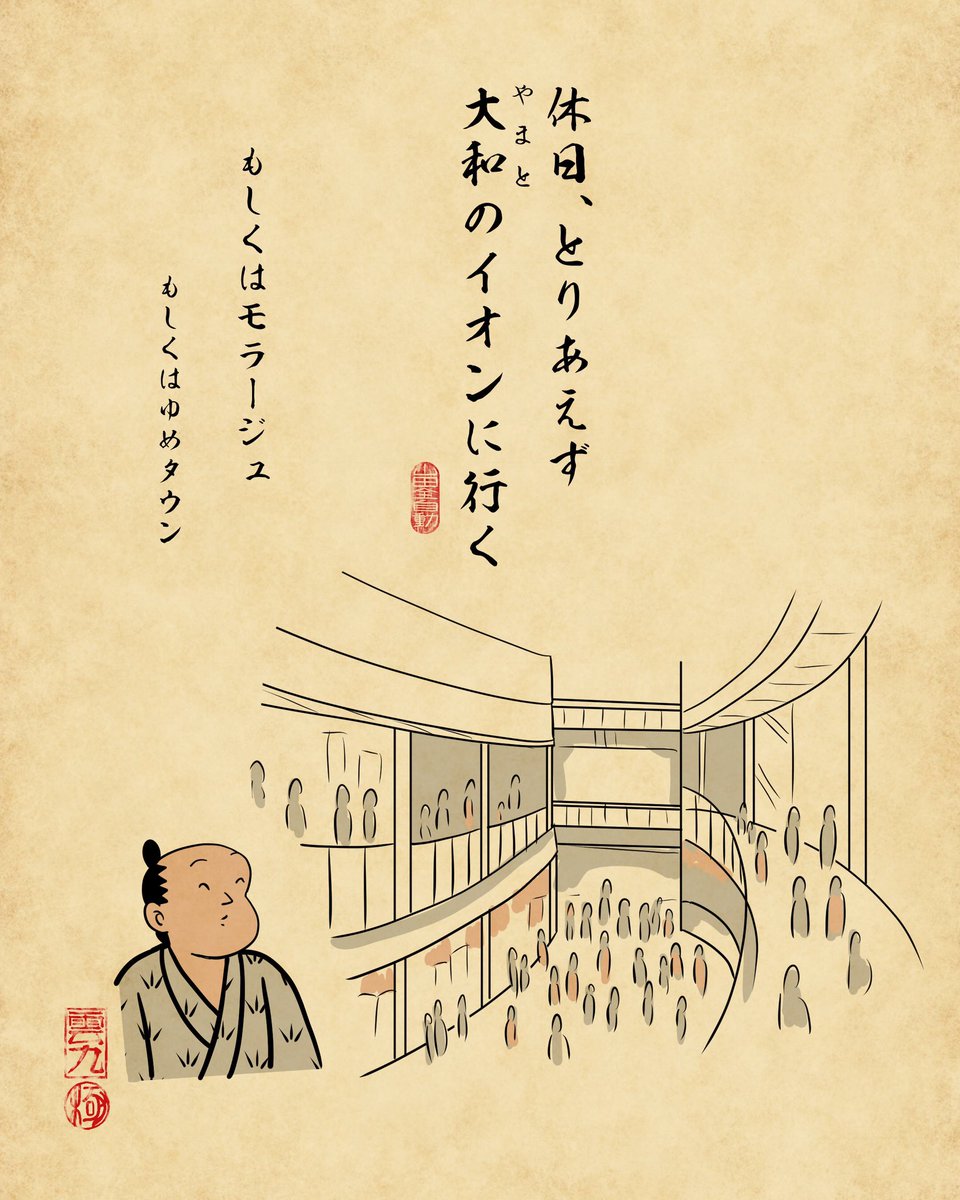 休日、とりあえず
大和のイオンに行く
やまと
もしくはモラージュ
もしくはゆめタウン